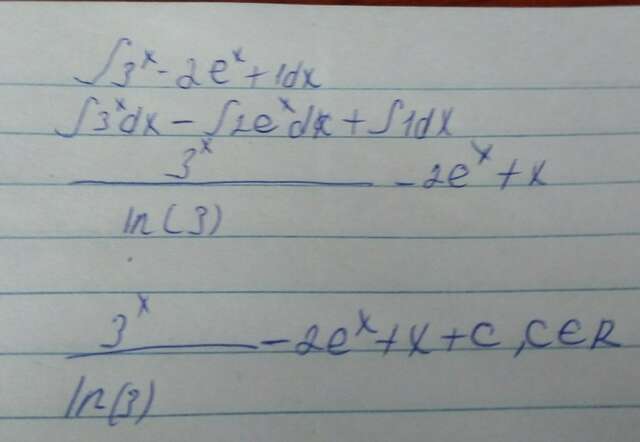 ∫3ˣ-2eˣ+1dx
∫3ˣdx-∫2eˣdx+∫1dx
3ˣ/ln(3) -2eˣ+x
3ˣ/ln(3) -2eˣ+x+C,C∈R